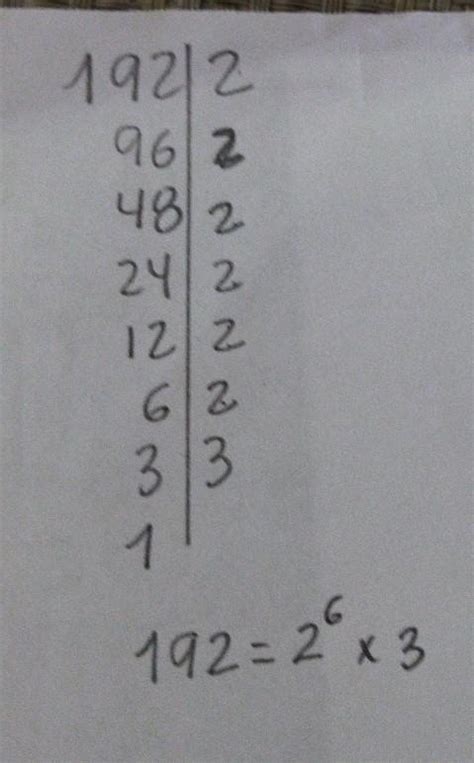 192 | 2
96 | 2
48 | 2
24 | 2
12 | 2
6 | 2
3 | 3
1 |
192 = 2⁶ x 3